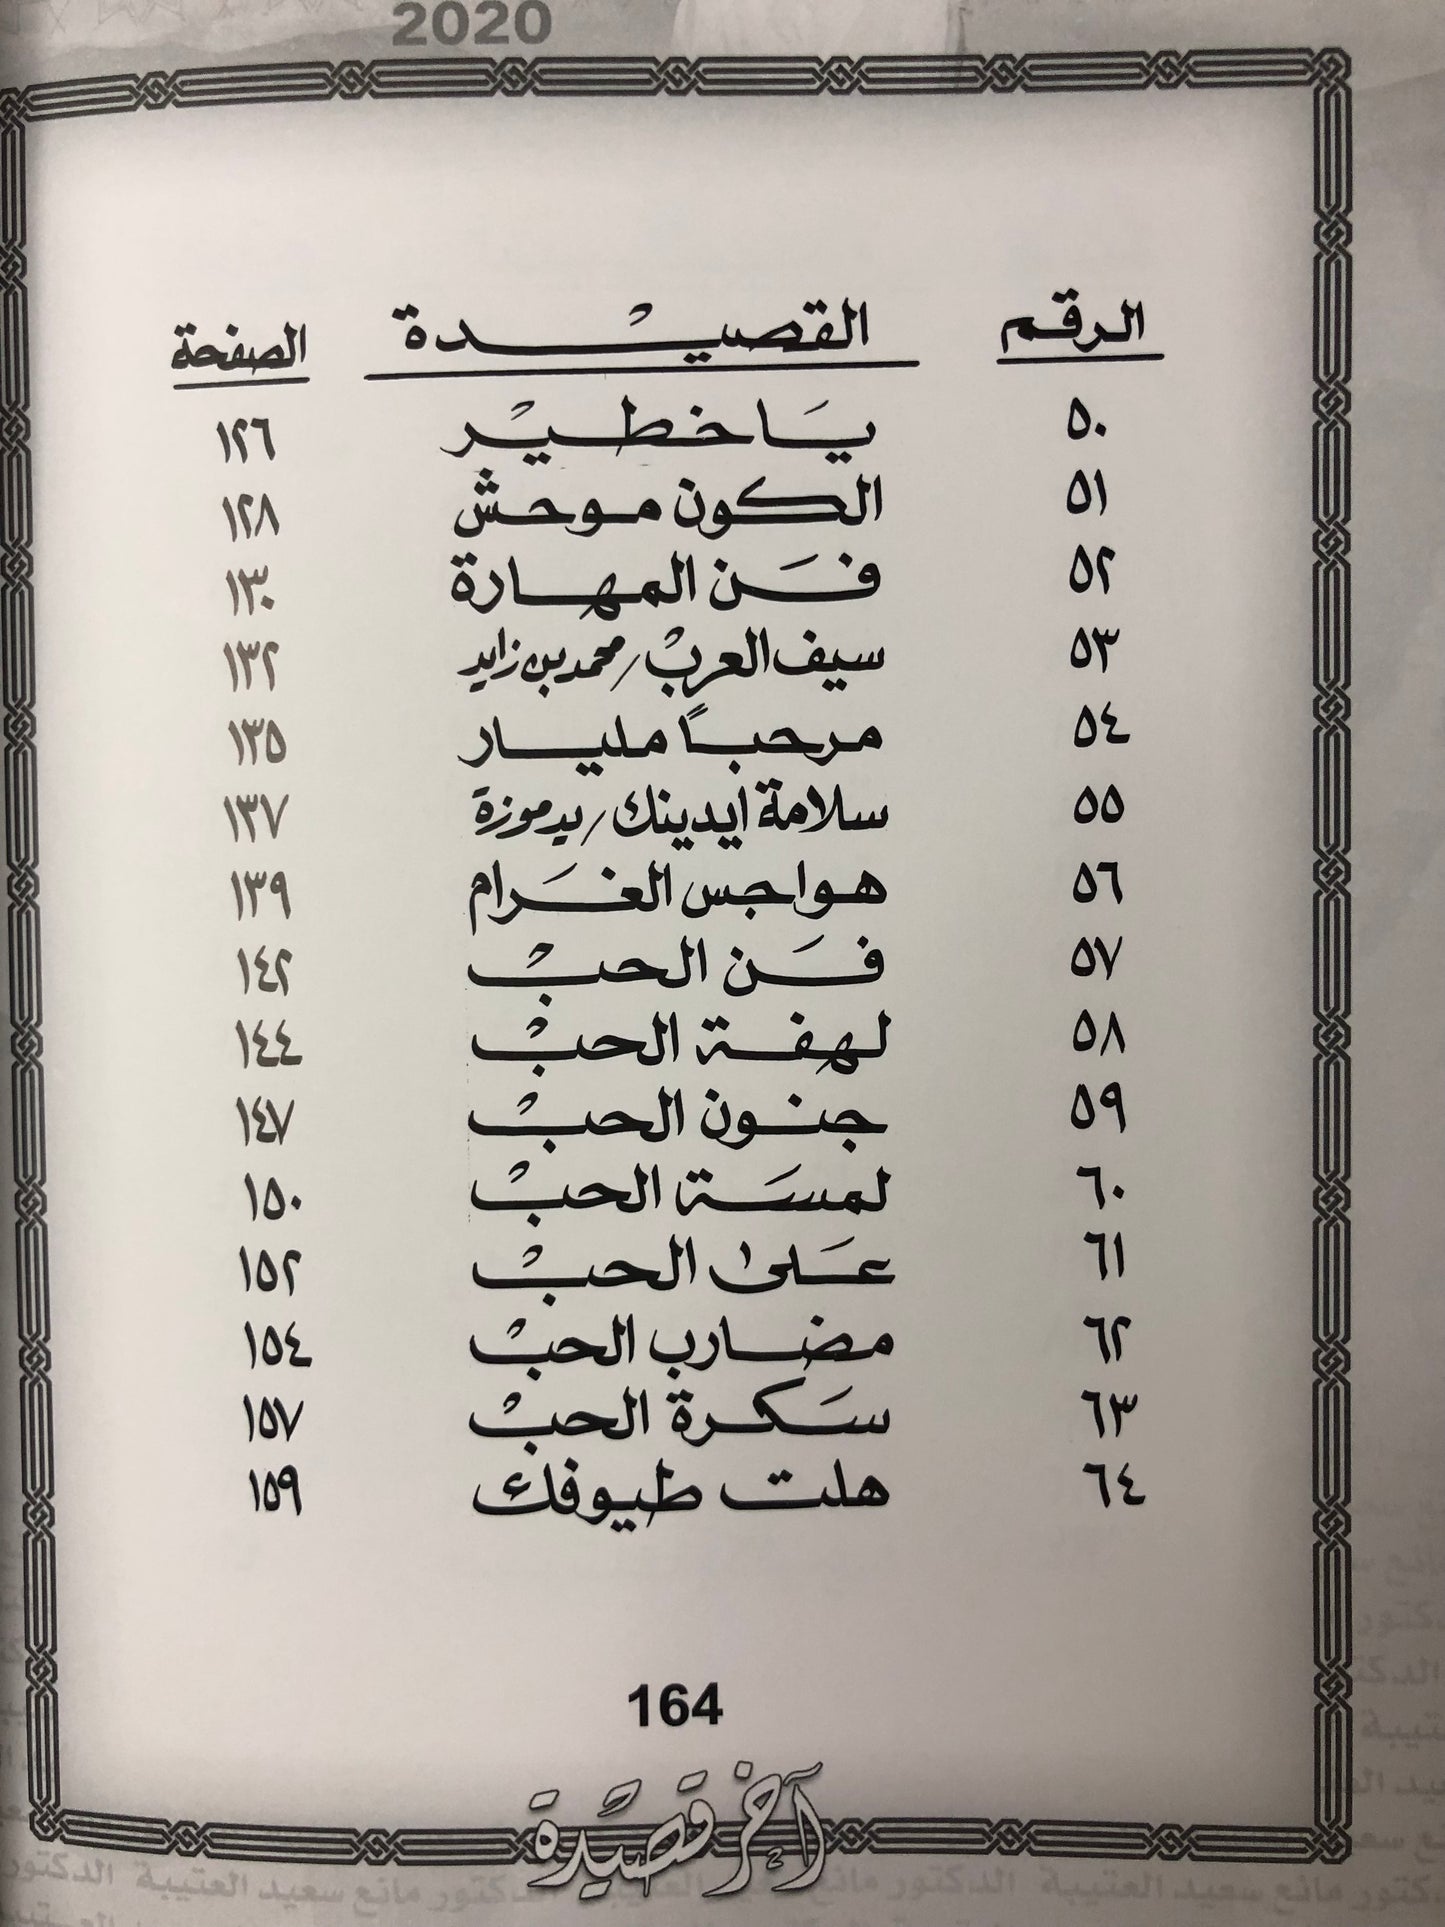 2020
الرقم القصيدة الصفحة
٥٠ يا خطير ١٢٦
٥١ الكون موحش ١٢٨
٥٢ فَن المهارة ١٣٠
٥٣ سيف العرب / محمد بن زايد ١٣٢
٥٤ مرحباً مليار ١٣٥
٥٥ سلامة ايدينك / يدموزة ١٣٧
٥٦ هواجس الغَرام ١٣٩
٥٧ فَن الحبْ ١٤٢
٥٨ لهفة الحبْ ١٤٤
٥٩ جنون الحبْ ١٤٧
٦٠ لمسَة الحبْ ١٥٠
٦١ عَلى الحبْ ١٥٢
٦٢ مضارب الحبْ ١٥٤
٦٣ سَكرة الحبْ ١٥٧
٦٤ هلت طيوفك ١٥٩
164
آخر قصيدة
الدكتور مانع سعيد العتيبة الدكتور مانع سعيد العتيبة